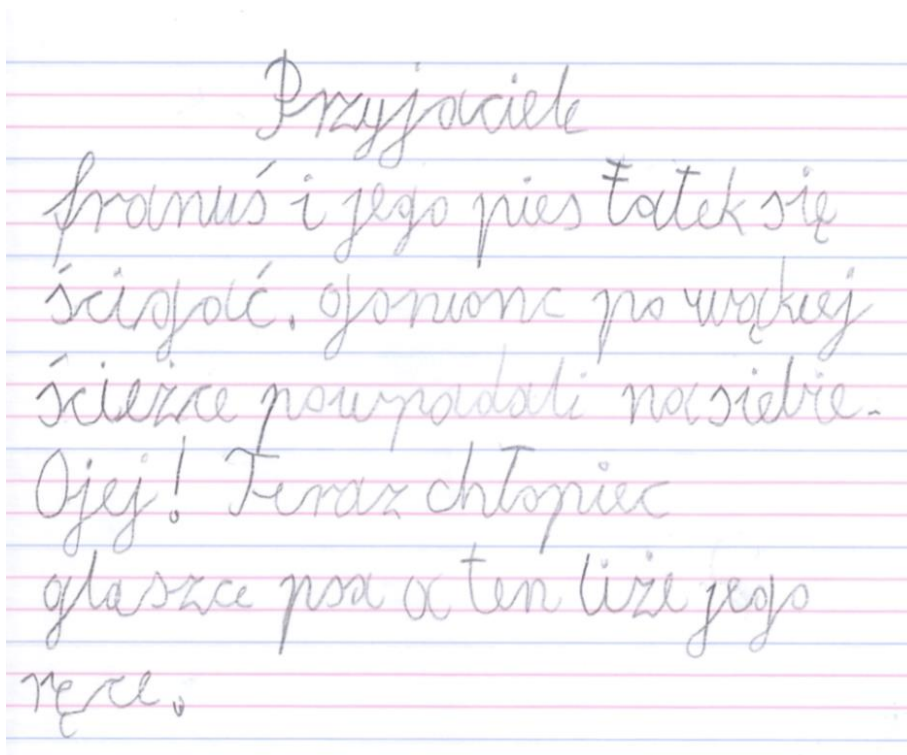 Przyjaciele
franuś i jego pies Łatek się
ścigać. goniąc po wąkiej
ścieżce powpadali na siebie.
Ojej! Teraz chłopiec
glaszcze psa a ten liże jego
ręce.